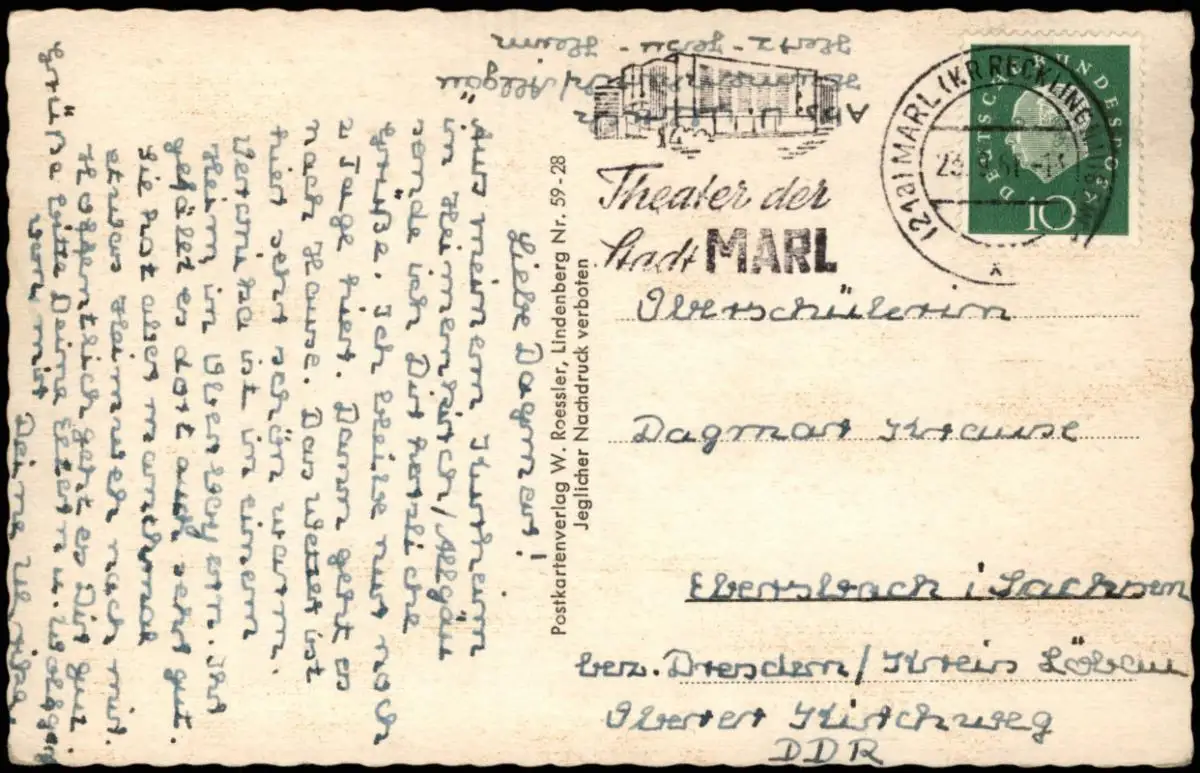 Liebe Dagmar!
Aus meinem Kurheim
in Heimenkirch/Allgäu
sende ich Dir herzliche
Grüße. Ich bleibe nur noch
2 Tage hier. Dann geht es
nach Hause. Das Wetter ist
hier sehr schön warm.
ist in einem
Heim in Oberbayern. Ihr
gefällt es dort auch sehr gut.
Sie hat aber manchmal
etwas Heimweh nach mir.
Hoffentlich geht es Dir gut.
Grüße bitte Deine Eltern u. Wolfgang
von mir
Deine Ulrike.
Postkartenverlag W. Roessler, Lindenberg Nr. 59-28
Jeglicher Nachdruck verboten
Abs.: U.
/Allgäu
Herz-Jesu-Heim
Theater der
Stadt MARL
(21a) MARL (KR RECKLINGHAUSEN)
DEUTSCHE BUNDESPOST
10
Oberschülerin
Dagmar Krause
Ebersbach i/Sachsen
bez. Dresden/Kreis Löbau
Oberer Kirchweg
DDR